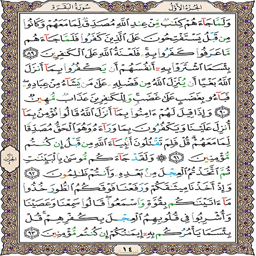 سورة البقرة
الجزء الأول
ولما جاءهم كتب من عند الله مصدق لما معهم وكانوا
من قبل يستفتحون على الذين كفروا فلما جاءهم
ما عرفوا كفروا به فلعنة الله على الكفرين ٨٩
بئسما اشتروا به أنفسهم أن يكفروا بما أنزل
الله بغيا أن ينزل الله من فضله على من يشاء من عباده
فباءو بغضب على غضب وللكفرين عذاب مهين ٩٠
وإذا قيل لهم ءامنوا بما أنزل الله قالوا نؤمن بما
أنزل علينا ويكفرون بما وراءه وهو الحق مصدقا
لما معهم قل فلم تقتلون أنبياء الله من قبل إن كنتم
مؤمنين ٩١ ولقد جاءكم موسى بالبينت
ثم اتخذتم العجل من بعده وأنتم ظلمون ٩٢
وإذ أخذنا ميثقكم ورفعنا فوقكم الطور خذوا
ما ءاتينكم بقوة واسمعوا قالوا سمعنا وعصينا
وأشربوا في قلوبهم العجل بكفرهم قل
بئسما يأمركم به إيمنكم إن كنتم مؤمنين ٩٣
١٤